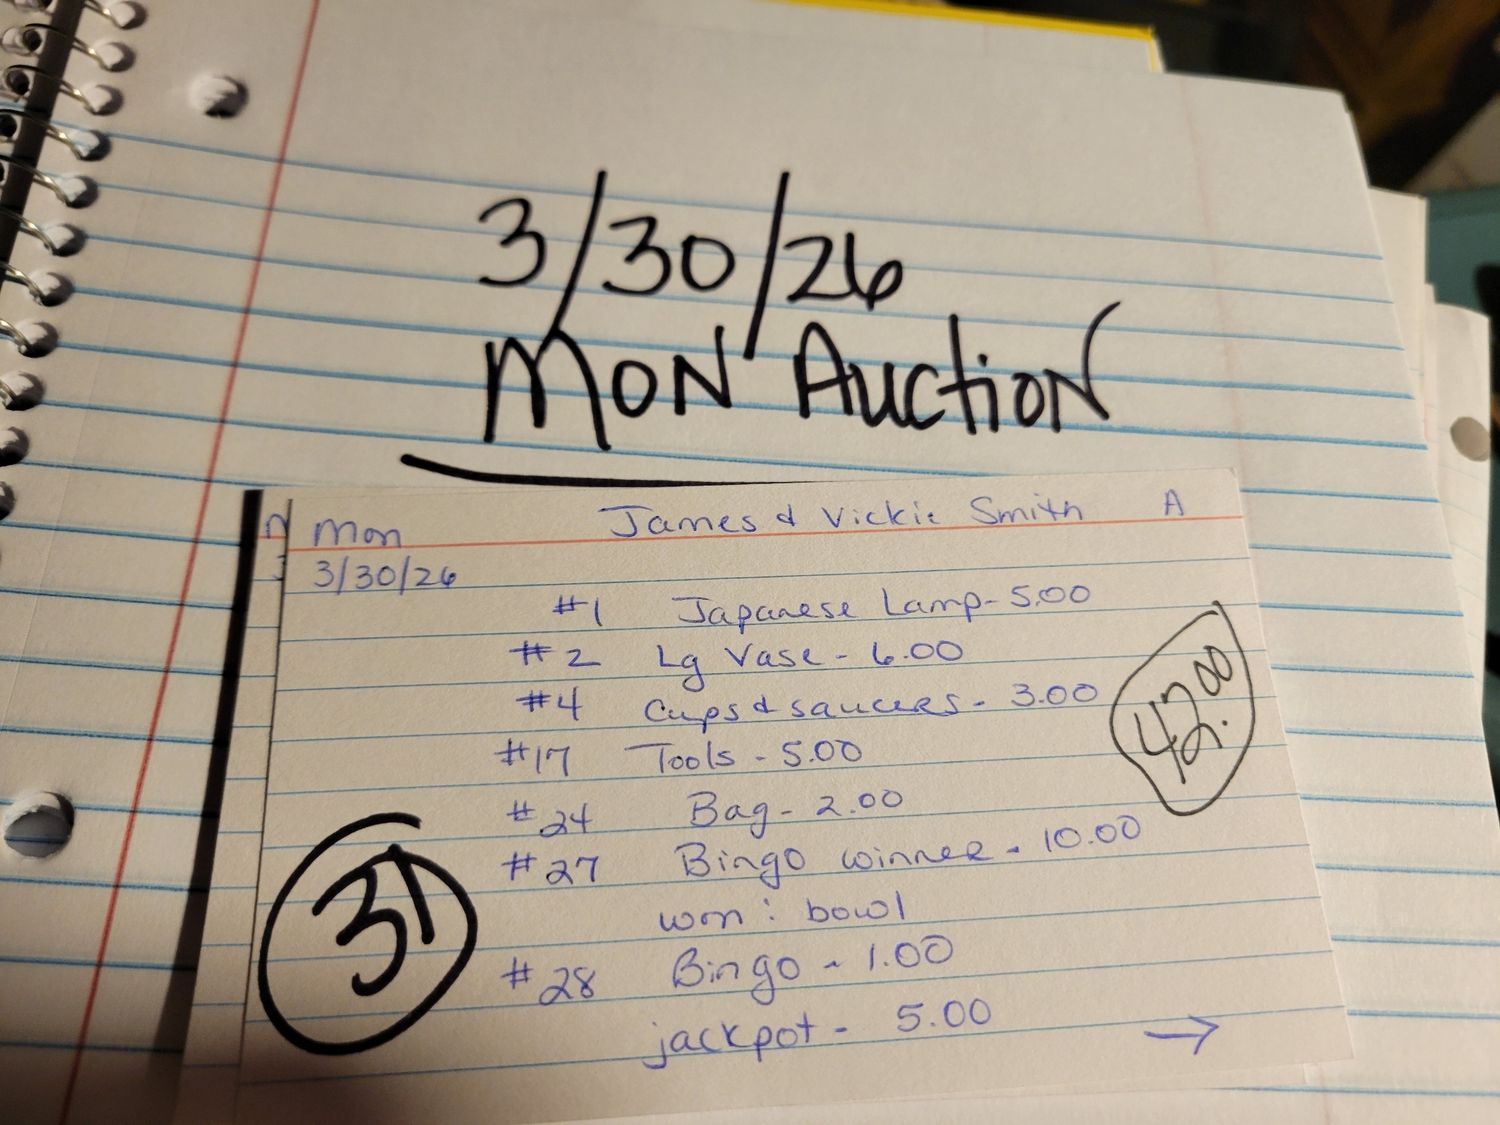 3/30/26
Mon Auction
Mon James & Vickie Smith A
3/30/26
#1 Japanese Lamp - 5.00
#2 Lg Vase - 6.00
#4 Cups & saucers - 3.00
42.00
#17 Tools - 5.00
#24 Bag - 2.00
#27 Bingo winner - 10.00
31
won: bowl
#28 Bingo - 1.00
jackpot - 5.00
→